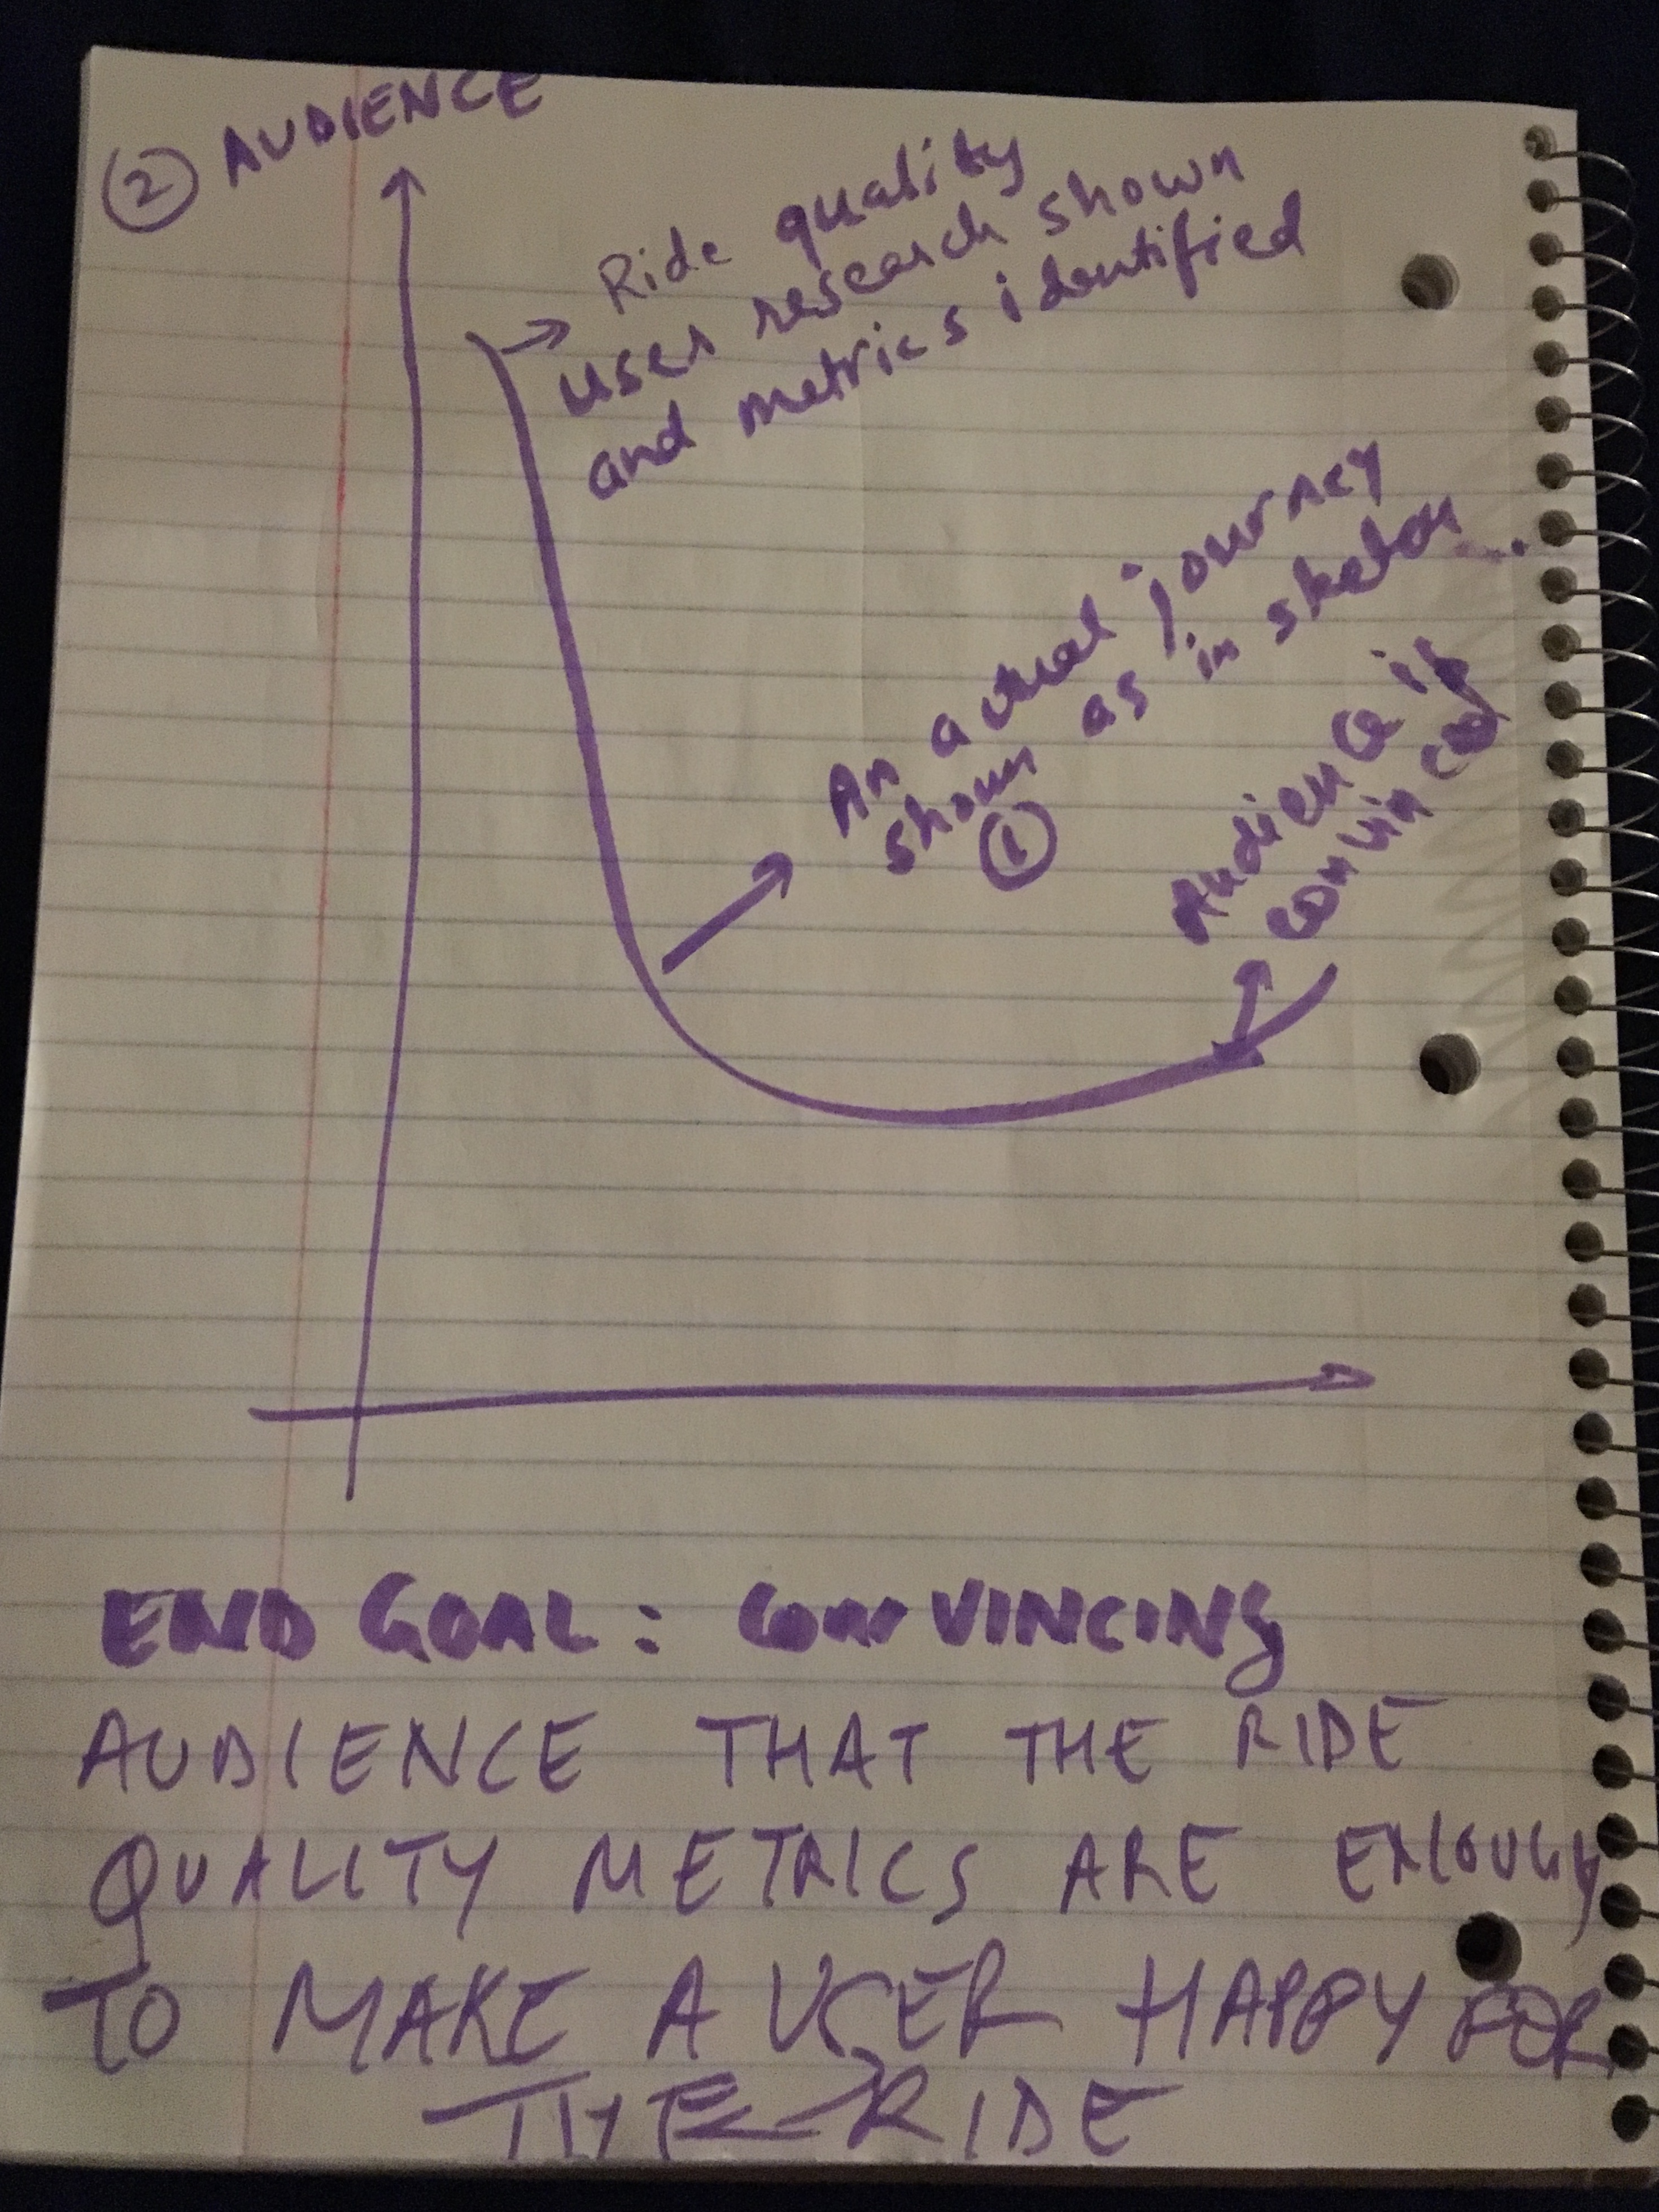 ② AUDIENCE
Ride quality
user research shown
and metrics identified
An actual journey
shown as in sketch
①
Audience is
convinced
END GOAL: CONVINCING
AUDIENCE THAT THE RIDE
QUALITY METRICS ARE ENOUGH
TO MAKE A USER HAPPY FOR
THE RIDE